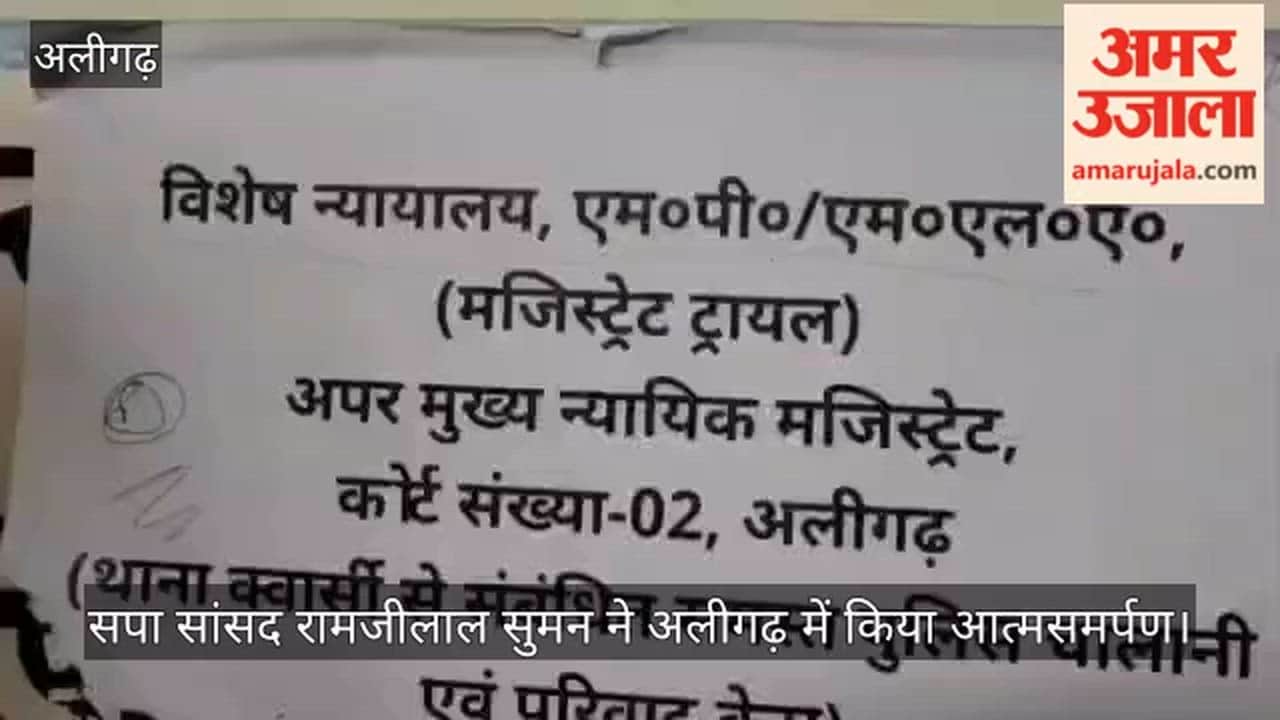 अलीगढ़
अमर
उजाला
amarujala.com
विशेष न्यायालय, एम०पी०/एम०एल०ए०,
(मजिस्ट्रेट ट्रायल)
अपर मुख्य न्यायिक मजिस्ट्रेट,
कोर्ट संख्या-02, अलीगढ़
(थाना क्वार्सी से संबंधित पुलिस चालानी
सपा सांसद रामजीलाल सुमन ने अलीगढ़ में किया आत्मसमर्पण।
एवं परिवाद